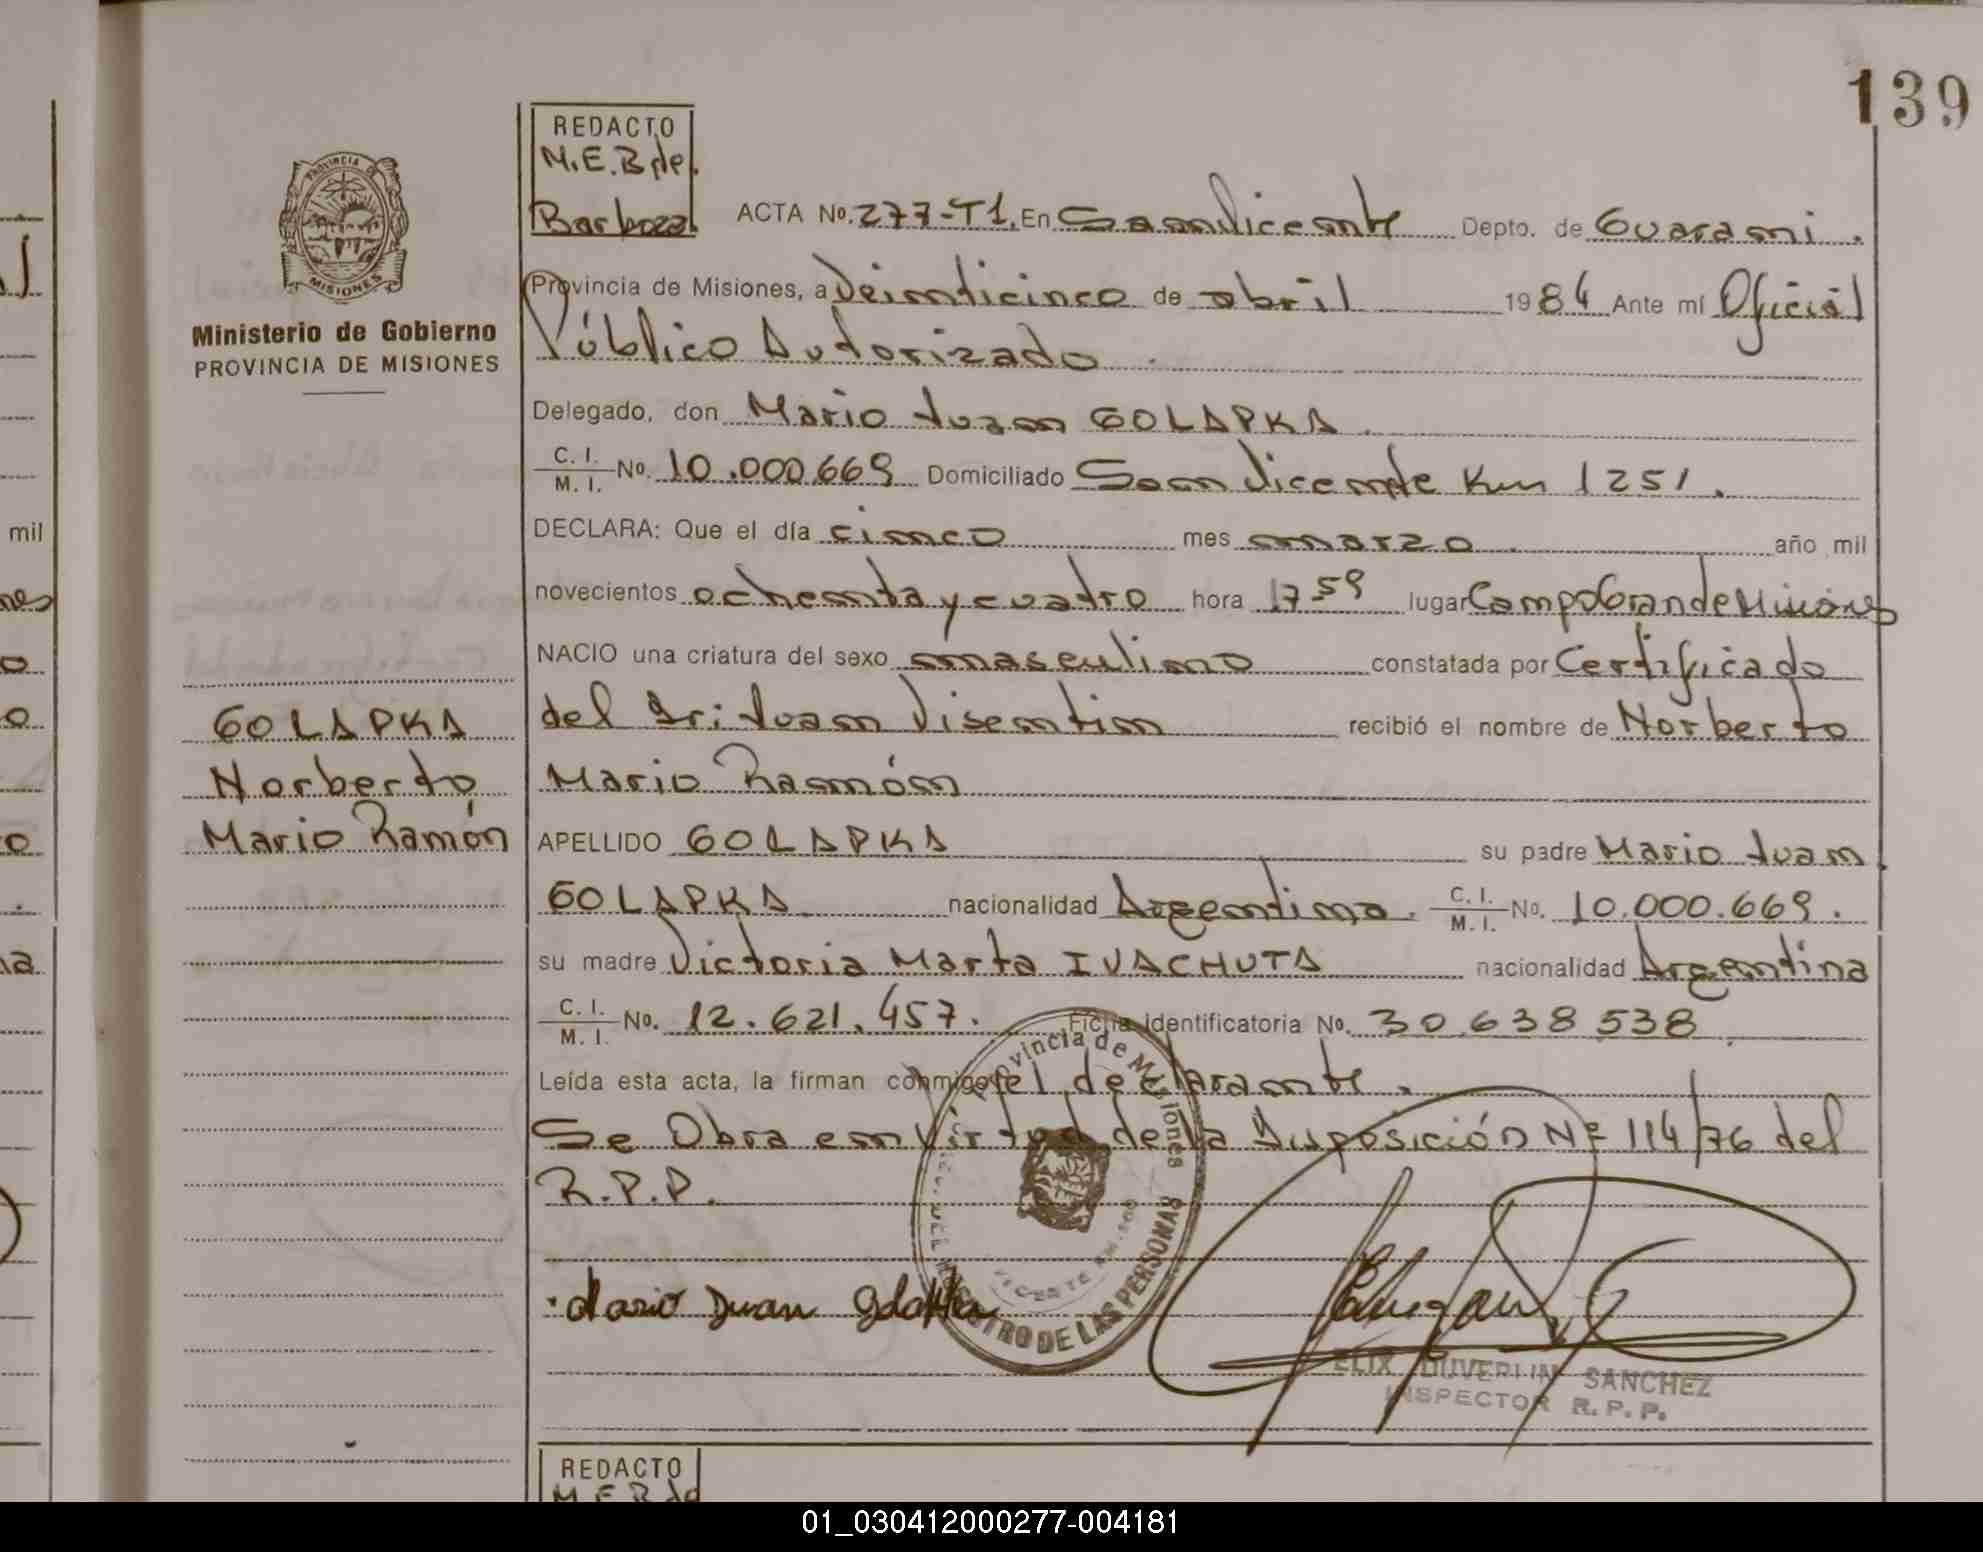 139
REDACTO
M.E.B de
Barboza
PROVINCIA DE
MISIONES
Ministerio de Gobierno
PROVINCIA DE MISIONES
ACTA No. 277-T1. En San Vicente Depto. de Guarani.
Provincia de Misiones, a Veinticinco de abril 1984 Ante mí Oficial
Público Autorizado
Delegado, don Mario Juan GOLAPKA
C. I. / M. I. No. 10.000.669 Domiciliado San Vicente Km 1251.
DECLARA: Que el día cinco mes marzo año mil
novecientos ochenta y cuatro hora 17 59 lugar Campo Grande Misiones
NACIO una criatura del sexo masculino constatada por Certificado
del Dr: Juan Visentin recibió el nombre de Norberto
Mario Ramón
APELLIDO GOLAPKA su padre Mario Juan
GOLAPKA nacionalidad Argentina. C. I. / M. I. No. 10.000.669.
su madre Victoria Marta IVACHUTA nacionalidad Argentina
C. I. / M. I. No. 12.621.457. Ficha Identificatoria No. 30.638.538
Leída esta acta, la firman conmigo el declarante.
Se Obra en virtud de la Disposición Nº 114/76 del
R.P.P.
GOLAPKA
Norberto
Mario Ramón
Provincia de Misiones
REGISTRO DE LAS PERSONAS
Mario Juan
SANCHEZ
INSPECTOR R.P.P.
REDACTO
M.E.B de
mil
01_030412000277-004181